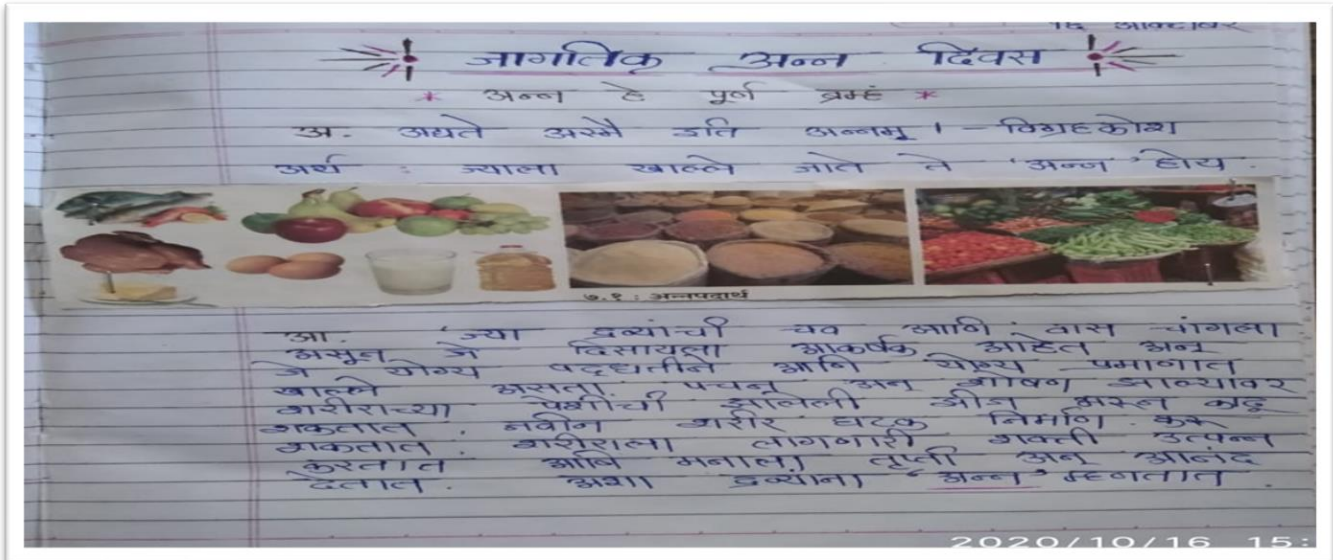 १६ ऑक्टोबर
जागतिक अन्न दिवस
* अन्न हे पूर्ण ब्रम्हं *
अ. अद्यते अस्मै इति अन्नम् । - विग्रहकोश
अर्थ : ज्याला खाल्ले जाते ते 'अन्न' होय.
७.१ : अन्नपदार्थ
आ. 'ज्या द्रव्यांची चव आणि वास चांगला
असून जे दिसायला आकर्षक आहेत अन्
जे योग्य पद्धतीने आणि योग्य प्रमाणात
खाल्ले असता पचन अन् शोषण झाल्यावर
शरीराच्या पेशींची झालेली झीज भरून काढू
शकतात. नवीन शरीर घटक निर्माण करू
शकतात. शरीराला लागणारी शक्ती उत्पन्न
करतात आणि मनाला तृप्ती अन् आनंद
देतात. अशा द्रव्यांना 'अन्न' म्हणतात.
2020/10/16 15: